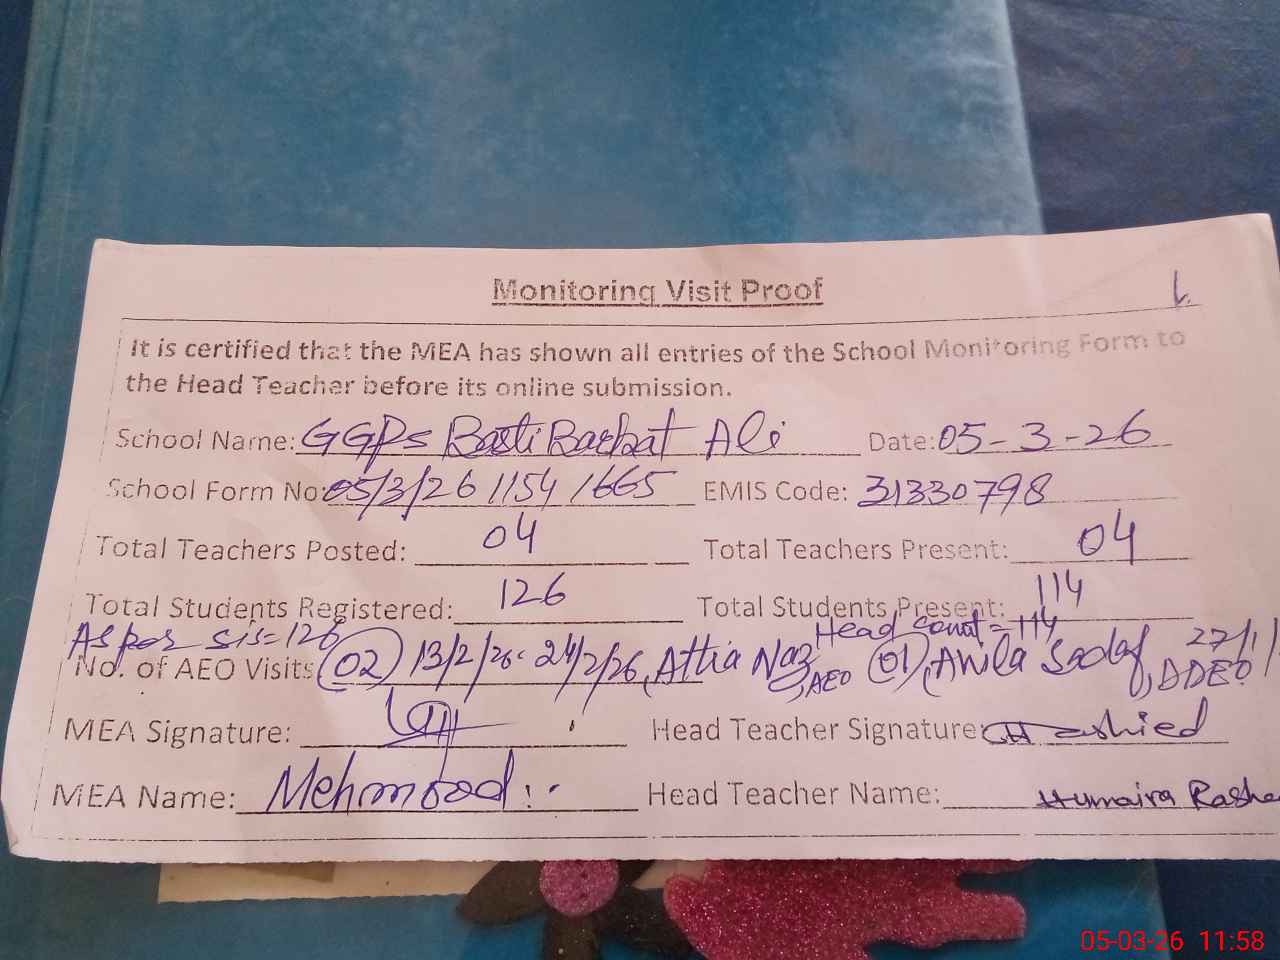 Monitoring Visit Proof
It is certified that the MEA has shown all entries of the School Monitoring Form to
the Head Teacher before its online submission.
School Name: GGPS Basti Barkat Ali Date: 05-3-26
School Form No: 05/3/26 1154 1665 EMIS Code: 31330798
Total Teachers Posted: 04 Total Teachers Present: 04
Total Students Registered: 126 Total Students Present: 114
As per sis=126 Head count=114
No. of AEO Visits (02) 13/2/26. 24/2/26, Attia Naz, AEO (01), Anila Sadaf, DDEO 27/1/
MEA Signature: Head Teacher Signature:
MEA Name: Mehmood Head Teacher Name: Humaira Rashe
05-03-26 11:58